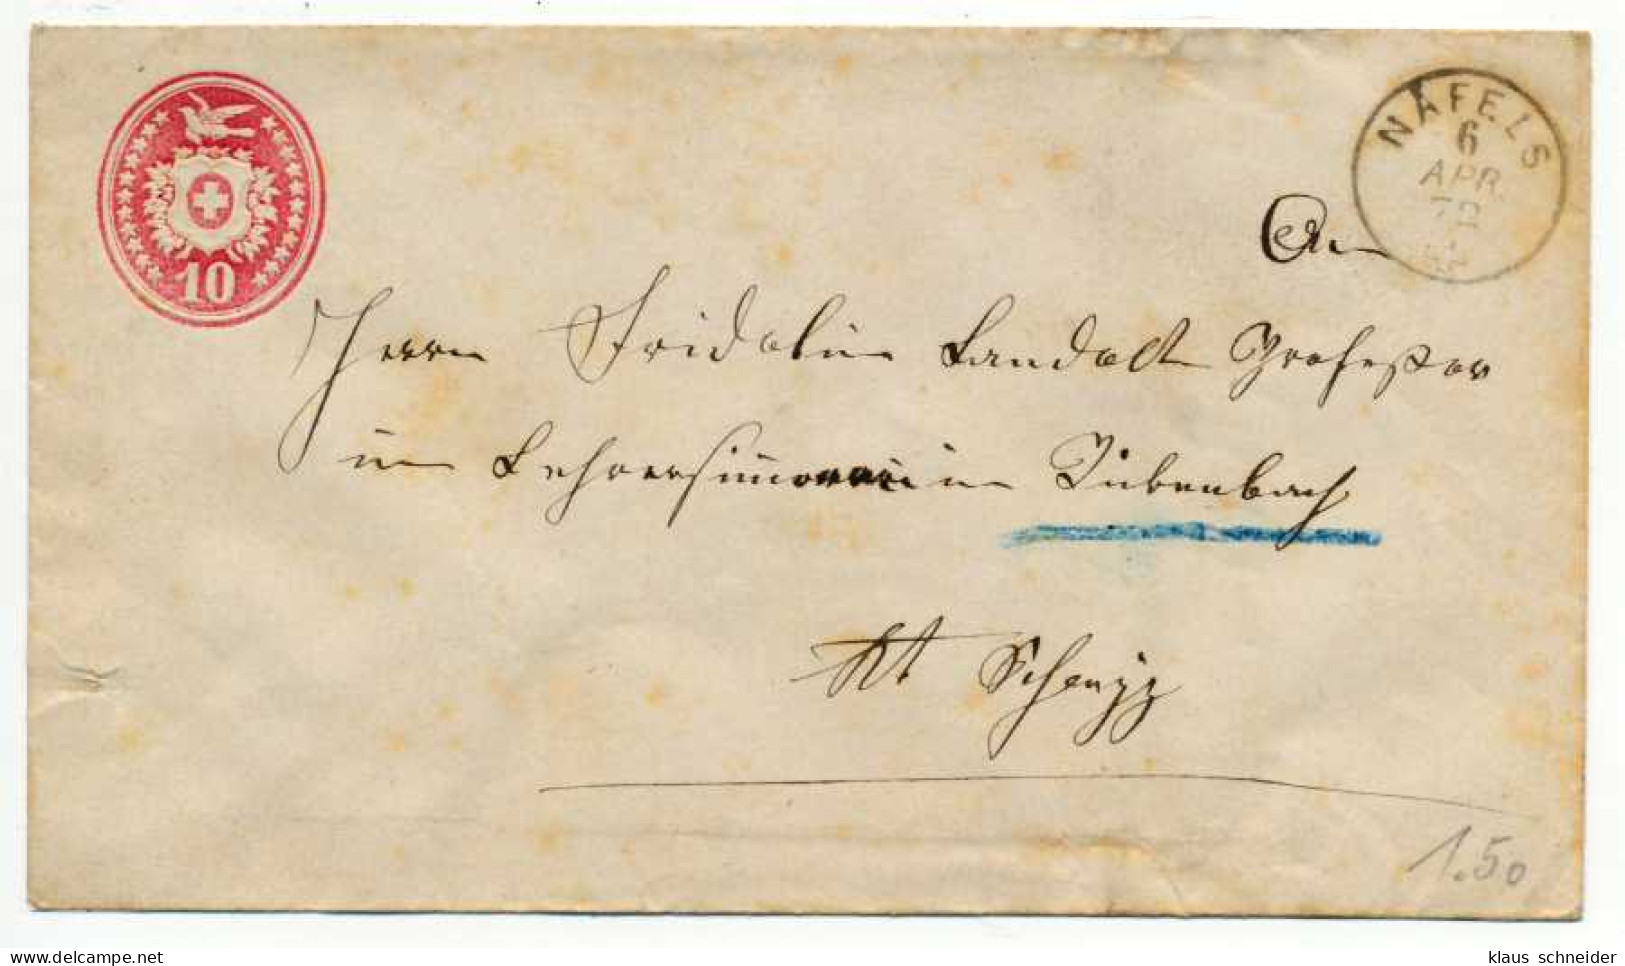 10
NÄFELS
6
APR.
72
An
Herrn Fridolin Landolt Professor
im in
Kt Schwyz
1.50
www.delcampe.net
klaus schneider